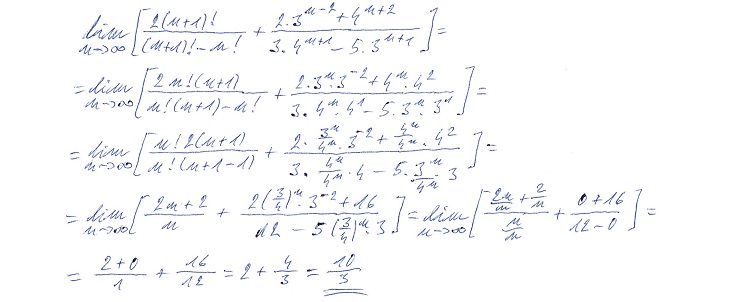 lim n→∞ [ 2(n+1)! / ((n+1)! - n!) + (2·3^(n-2) + 4^(n+2)) / (3·4^(n+1) - 5·3^(n+1)) ] =
= lim n→∞ [ 2n!(n+1) / (n!(n+1) - n!) + (2·3^n·3^(-2) + 4^n·4^2) / (3·4^n·4^1 - 5·3^n·3^1) ] =
= lim n→∞ [ n!2(n+1) / (n!(n+1-1)) + (2·3^n/4^n·3^(-2) + 4^n/4^n·4^2) / (3·4^n/4^n·4 - 5·3^n/4^n·3) ] =
= lim n→∞ [ (2n+2)/n + (2(3/4)^n·3^(-2) + 16) / (12 - 5(3/4)^n·3) ] = lim n→∞ [ (2n/n + 2/n) / (n/n) + (0+16)/(12-0) ] =
= (2+0)/1 + 16/12 = 2 + 4/3 = 10/3